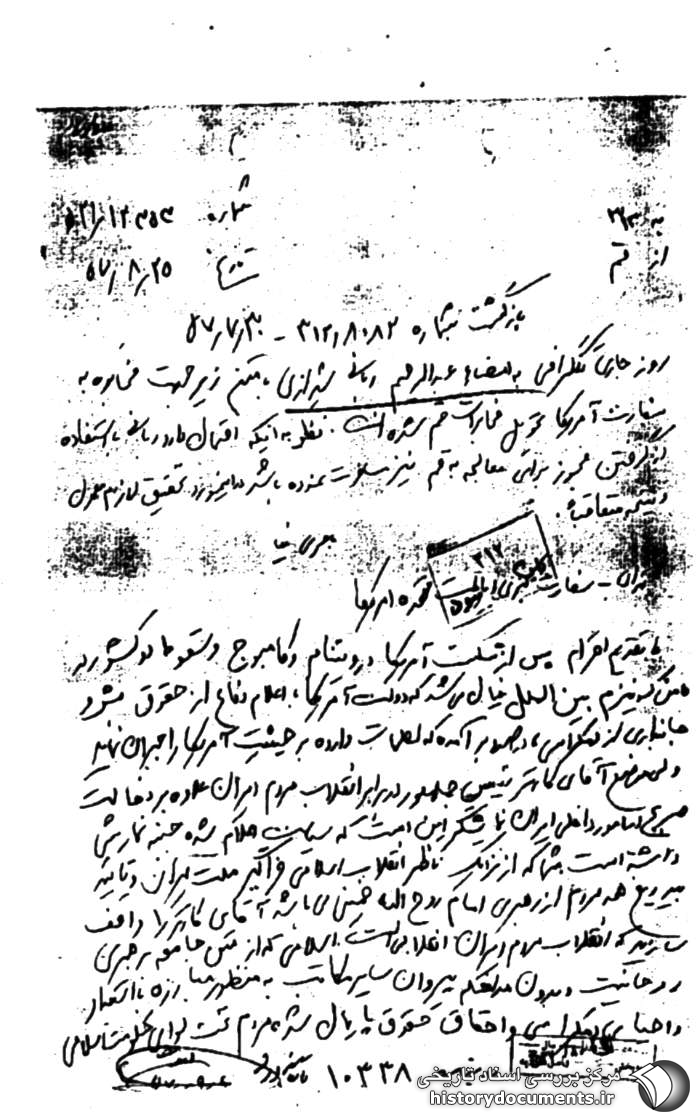 به ۳۱۲ شماره
از قم تاریخ ۵۷/۸/۲۵
بازگشت بشماره ۳۱۲/۸۰۸۲ - ۵۷/۷/۳۰
روز جاری تلگرافی به امضاء عبدالرحیم ربانی شیرازی بمتن زیر جهت مخابره به
سفارت آمریکا تحویل مخابرات قم شده است. نظر به اینکه احتمال دارد ربانی با استفاده
از گرفتن مجوز برای معالجه به قم نیز باشد در اینمورد تحقیق لازم معمول
و نتیجه متعاقباً.
۳۱۲
تهران - سفارت کبری ایالات متحده امریکا
با تقدیم احترام پس از شکست آمریکا در ویتنام و کامبوج و سقوط دو کشور در
کمونیزم بین الملل خیال می شد که دولت آمریکا با اعلام دفاع از حقوق بشر و
جانبداری از دمکراسی، درصدد برآمده که لطمات وارده بر حیثیت آمریکا را جبران نماید
ولی موضع آقای کارتر رئیس جمهور در برابر انقلاب مردم ایران علاوه بر دخالت
صریح در امور داخلی ایران این است که اعلام شده جنبه نمایشی
داشته است شما که از نزدیک ناظر انقلاب اسلامی فراگیر ملت ایران و تأیید
بیدریغ همه مردم از رهبری امام روح الله خمینی می باشید آقای کارتر را واقف
سازید که انقلاب مردم ایران انقلابی است اسلامی که از متن جامعه برهبری
روحانیت و بدون مداخله پیروان سایر مکاتب به منظور مبارزه با استعمار
و احیای دمکراسی و احقاق حقوق پایمال شده مردم تحت لوای حکومت اسلامی
۱۰۳۳۸
مرکز بررسی اسناد تاریخی
historydocuments.ir